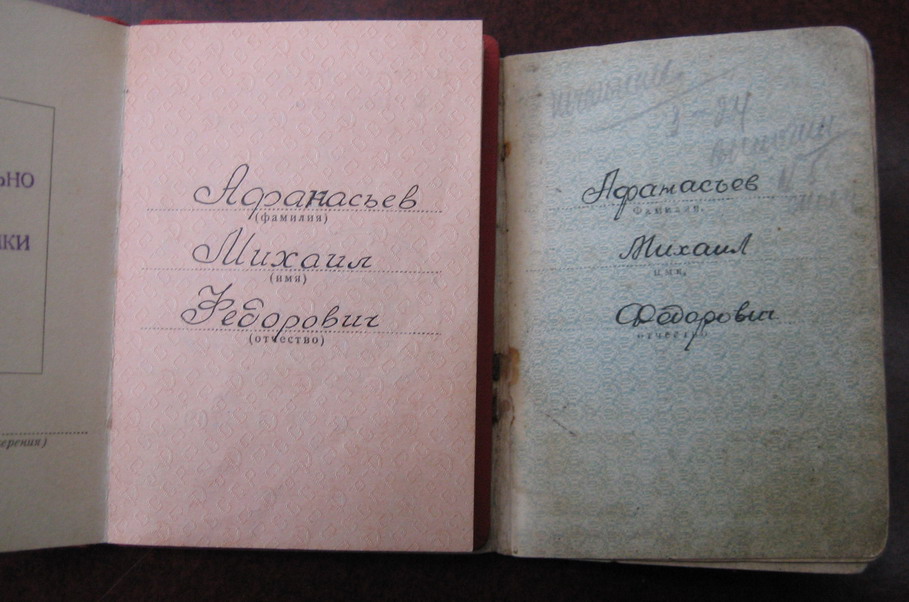 ьно
ки
ерения)
Афанасьев
(фамилия)
Михаил
(имя)
Федорович
(отчество)
3-24
Афанасьев
Фамилия
Михаил
имя,
Федорович
отчество